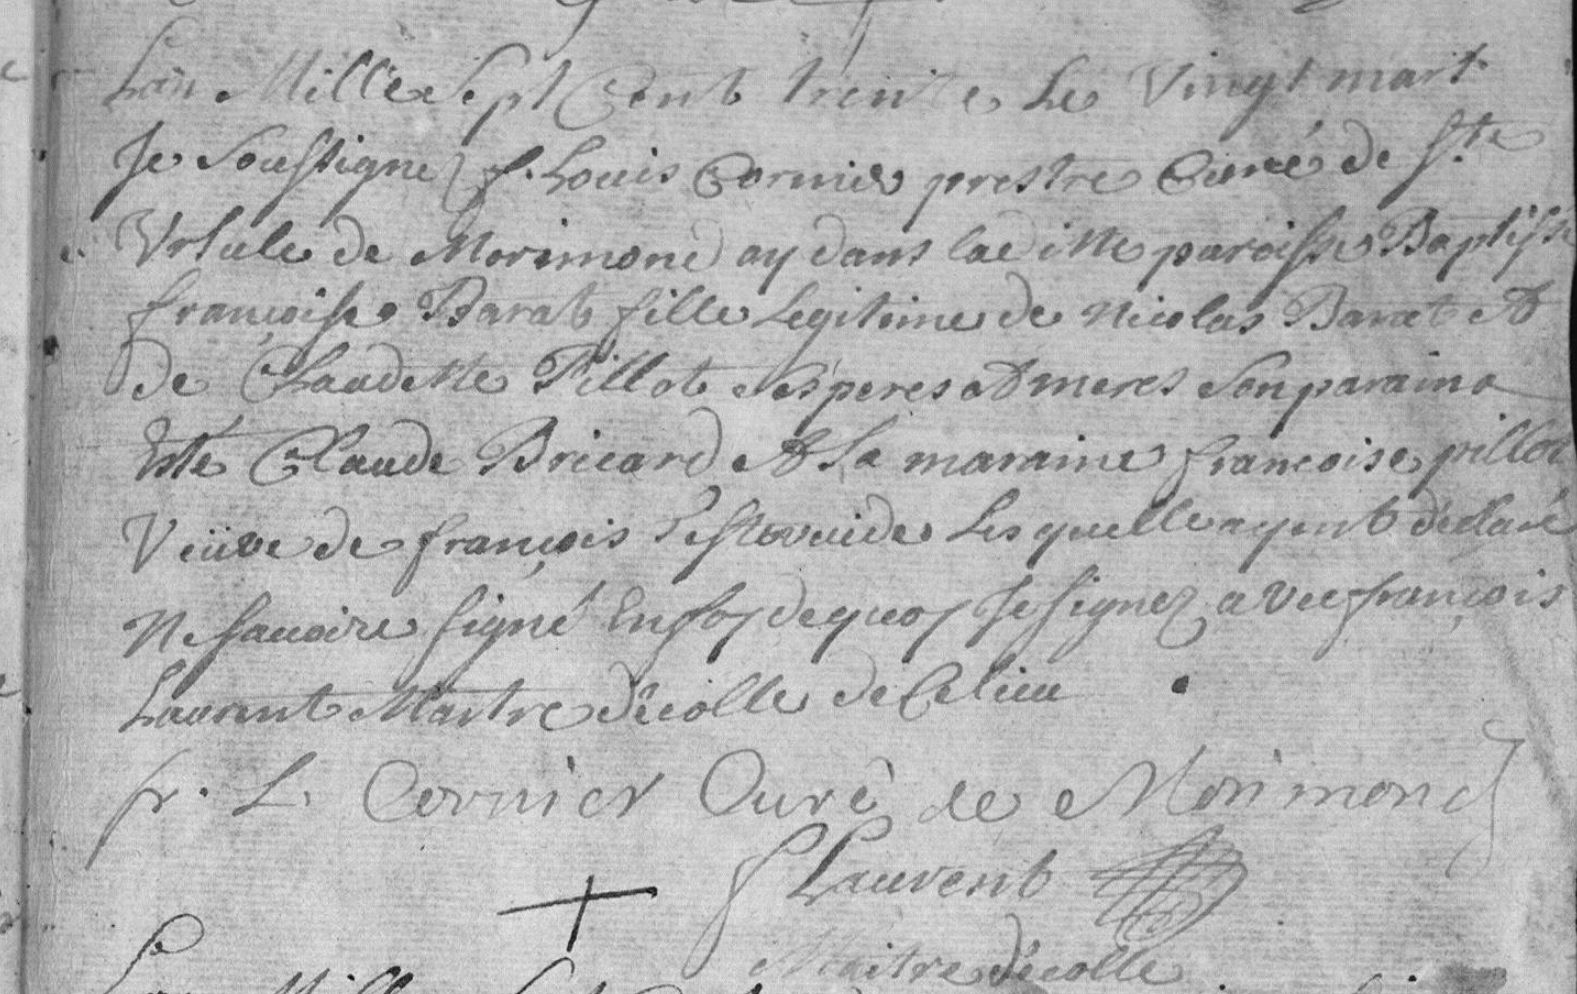 Lan Mille Sept Cent trente Le Vingt mart
Je Soussigne f. Louis Cornier prestre Curé de Ste
Ursule de Morimond ay dans laditte paroisse Baptisse
françoise Barat fille Legitime de Nicolas Barat et
de Claudette Pillot ses peres et meres Son paraina
Esté Claude Bricard et Sa maraine francoise pillot
Veüve de françois Lesquelle ayent déclaré
Ne sauoire signé En foy de quoy Je signez avec françois
Laurent Maitre décolle de Ce lieu
fr. L. Cornier Curé de Morimond
f Laurent
Maitre décolle